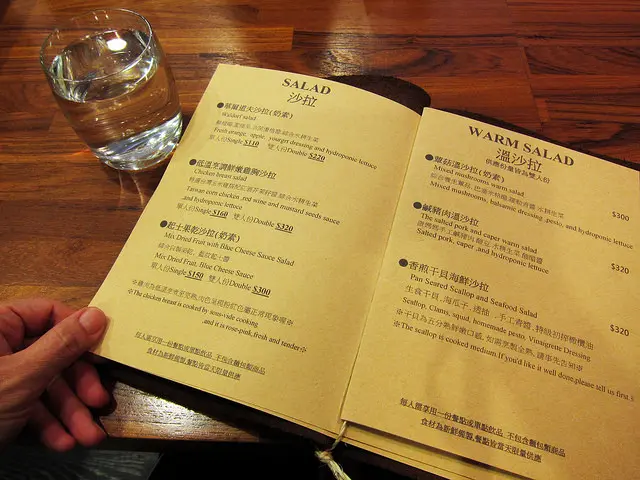 SALAD
沙拉
華爾道夫沙拉(奶素)
Waldorf salad
Fresh orange, apple, yogurt dressing and hydroponic lettuce
單人份Single $110 雙人份Double $220
低溫烹調鮮嫩雞胸沙拉
Chicken breast salad
Taiwan corn chicken ,red wine and mustard seeds sauce
and hydroponic lettuce
單人份Single $160 雙人份Double $320
起士果乾沙拉(奶素)
Mix Dried Fruit with Blue Cheese Sauce Salad
Mix Dried Fruit, Blue Cheese Sauce
單人份Single $150 雙人份Double $300
※The chicken breast is cooked by sous-vide cooking
and it is rose-pink,fresh and tender※
每人需享用一份餐點或單點飲品 不包含麵包類商品
食材為新鮮現製,餐點皆當天限量供應
WARM SALAD
溫沙拉
供應份量皆為雙人份
蕈菇溫沙拉(奶素) $300
Mixed mushrooms warm salad
Mixed mushrooms, balsamic dressing ,pesto, and hydroponic lettuce
鹹豬肉溫沙拉 $320
The salted pork and caper warm salad
Salted pork, caper ,and hydroponic lettuce
香煎干貝海鮮沙拉 $320
Pan Seared Scallop and Seafood Salad
生食干貝 ,海瓜子 ,透抽 ,手工青醬 ,特級初榨橄欖油
Scallop, Clams, squid, homemade pesto, Vinaigrette Dressing
※干貝為五分熟鮮嫩口感, 如需烹製全熟, 請事先告知※
※The scallop is cooked medium.If you'd like it well done,please tell us first.
每人需享用一份餐點或單點飲品 不包含麵包類商品
食材為新鮮現製,餐點皆當天限量供應